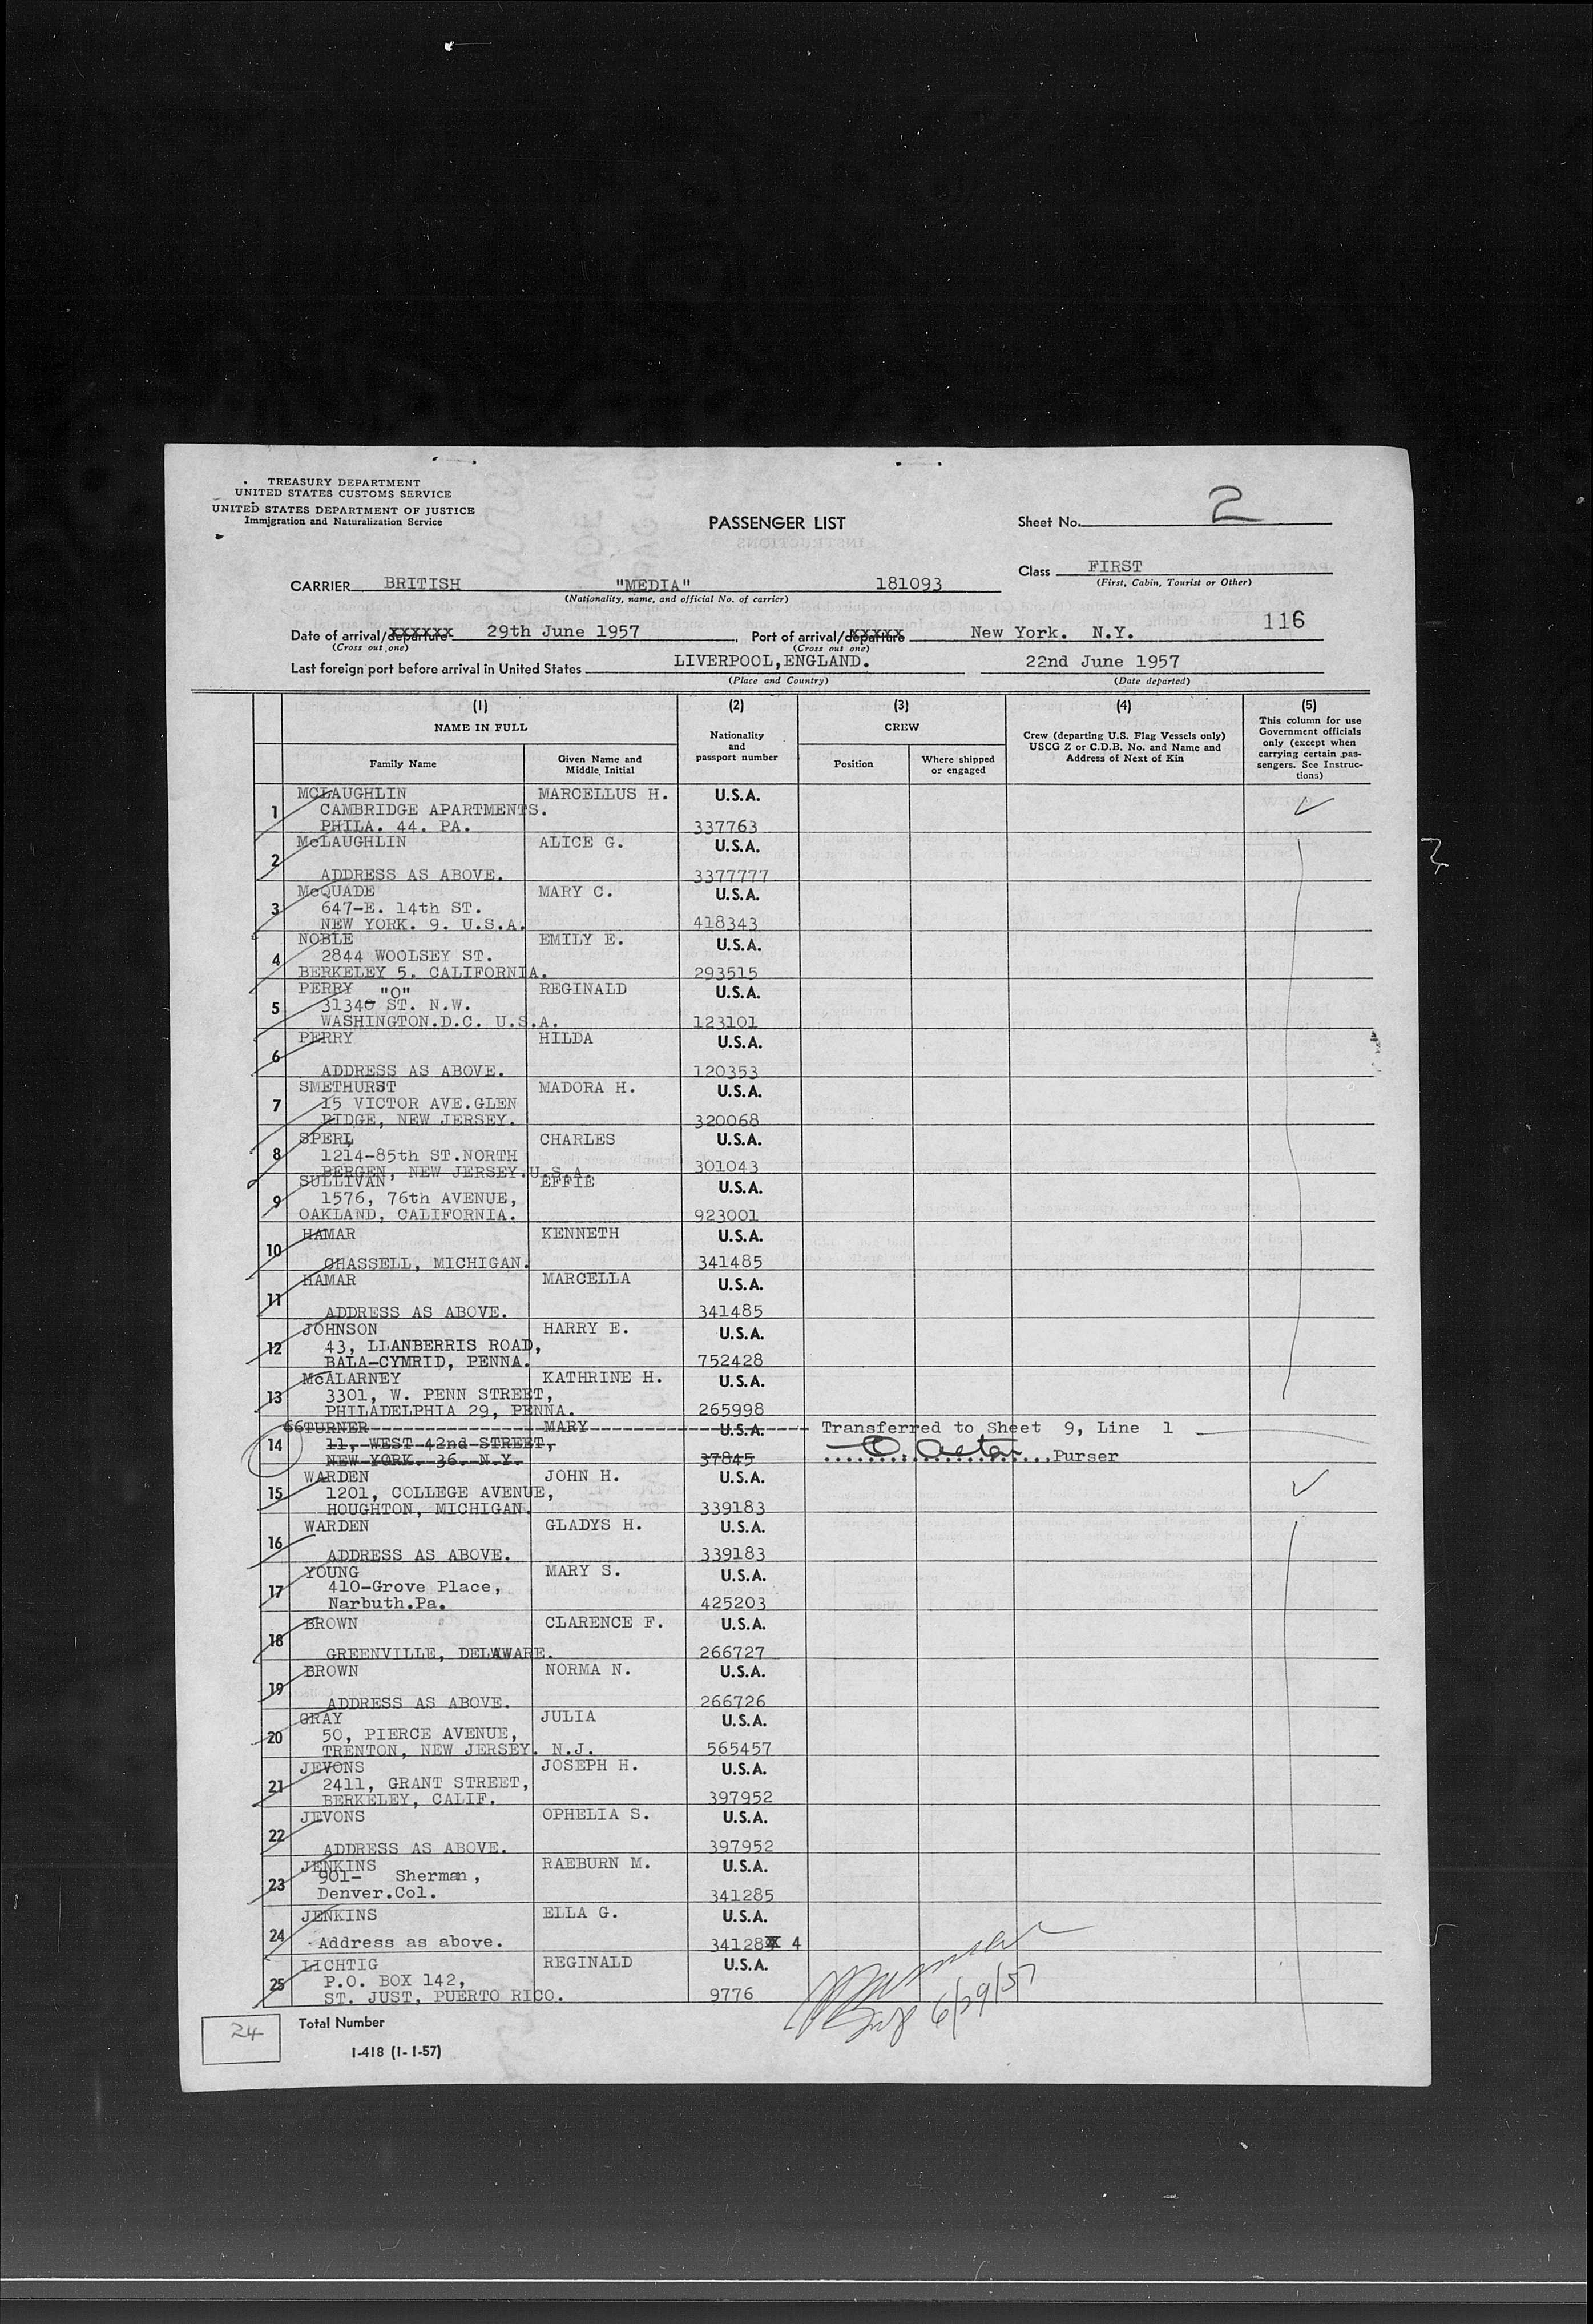 TREASURY DEPARTMENT
UNITED STATES CUSTOMS SERVICE
UNITED STATES DEPARTMENT OF JUSTICE
Immigration and Naturalization Service
PASSENGER LIST
Sheet No. 2
Class FIRST
(First, Cabin, Tourist or Other)
CARRIER BRITISH "MEDIA" 181093
(Nationality, name, and official No. of carrier)
116
Date of arrival/departure 29th June 1957 Port of arrival/departure New York. N.Y.
(Cross out one) (Cross out one)
Last foreign port before arrival in United States LIVERPOOL,ENGLAND. 22nd June 1957
(Place and Country) (Date departed)
(1) (2) (3) (4) (5)
NAME IN FULL Nationality and passport number CREW Crew (departing U.S. Flag Vessels only) USCG Z or C.D.B. No. and Name and Address of Next of Kin This column for use Government officials only (except when carrying certain passengers. See Instructions)
Family Name Given Name and Middle Initial Position Where shipped or engaged
1 MCLAUGHLIN MARCELLUS H. U.S.A.
CAMBRIDGE APARTMENTS.
PHILA. 44. PA. 337763
2 McLAUGHLIN ALICE G. U.S.A.
ADDRESS AS ABOVE. 3377777
3 McQUADE MARY C. U.S.A.
647-E. 14th ST.
NEW YORK. 9. U.S.A. 418343
4 NOBLE EMILY E. U.S.A.
2844 WOOLSEY ST.
BERKELEY 5. CALIFORNIA. 293515
5 PERRY "O" REGINALD U.S.A.
31340 ST. N.W.
WASHINGTON.D.C. U.S.A. 123101
6 PERRY HILDA U.S.A.
ADDRESS AS ABOVE. 120353
7 SMETHURST MADORA H. U.S.A.
15 VICTOR AVE.GLEN
RIDGE, NEW JERSEY. 320068
8 SPERL CHARLES U.S.A.
1214-85th ST.NORTH
BERGEN, NEW JERSEY.U.S.A. 301043
9 SULLIVAN EFFIE U.S.A.
1576, 76th AVENUE,
OAKLAND, CALIFORNIA. 923001
10 HAMAR KENNETH U.S.A.
CHASSELL, MICHIGAN. 341485
11 HAMAR MARCELLA U.S.A.
ADDRESS AS ABOVE. 341485
12 JOHNSON HARRY E. U.S.A.
43, LLANBERRIS ROAD,
BALA-CYMRID, PENNA. 752428
13 McALARNEY KATHRINE H. U.S.A.
3301, W. PENN STREET,
PHILADELPHIA 29, PENNA. 265998
14 66 TURNER MARY U.S.A. Transferred to Sheet 9, Line 1
11, WEST 42nd STREET,
NEW YORK. 36. N.Y. 37845 Purser
15 WARDEN JOHN H. U.S.A.
1201, COLLEGE AVENUE,
HOUGHTON, MICHIGAN. 339183
16 WARDEN GLADYS H. U.S.A.
ADDRESS AS ABOVE. 339183
17 YOUNG MARY S. U.S.A.
410-Grove Place,
Narbuth.Pa. 425203
18 BROWN CLARENCE F. U.S.A.
GREENVILLE, DELAWARE. 266727
19 BROWN NORMA N. U.S.A.
ADDRESS AS ABOVE. 266726
20 GRAY JULIA U.S.A.
50, PIERCE AVENUE,
TRENTON, NEW JERSEY. N.J. 565457
21 JEVONS JOSEPH H. U.S.A.
2411, GRANT STREET,
BERKELEY, CALIF. 397952
22 JEVONS OPHELIA S. U.S.A.
ADDRESS AS ABOVE. 397952
23 JENKINS RAEBURN M. U.S.A.
901- Sherman,
Denver.Col. 341285
24 JENKINS ELLA G. U.S.A.
Address as above. 34128X 4
25 LICHTIG REGINALD U.S.A.
P.O. BOX 142,
ST. JUST, PUERTO RICO. 9776
6/29/57
24 Total Number
I-418 (1-1-57)